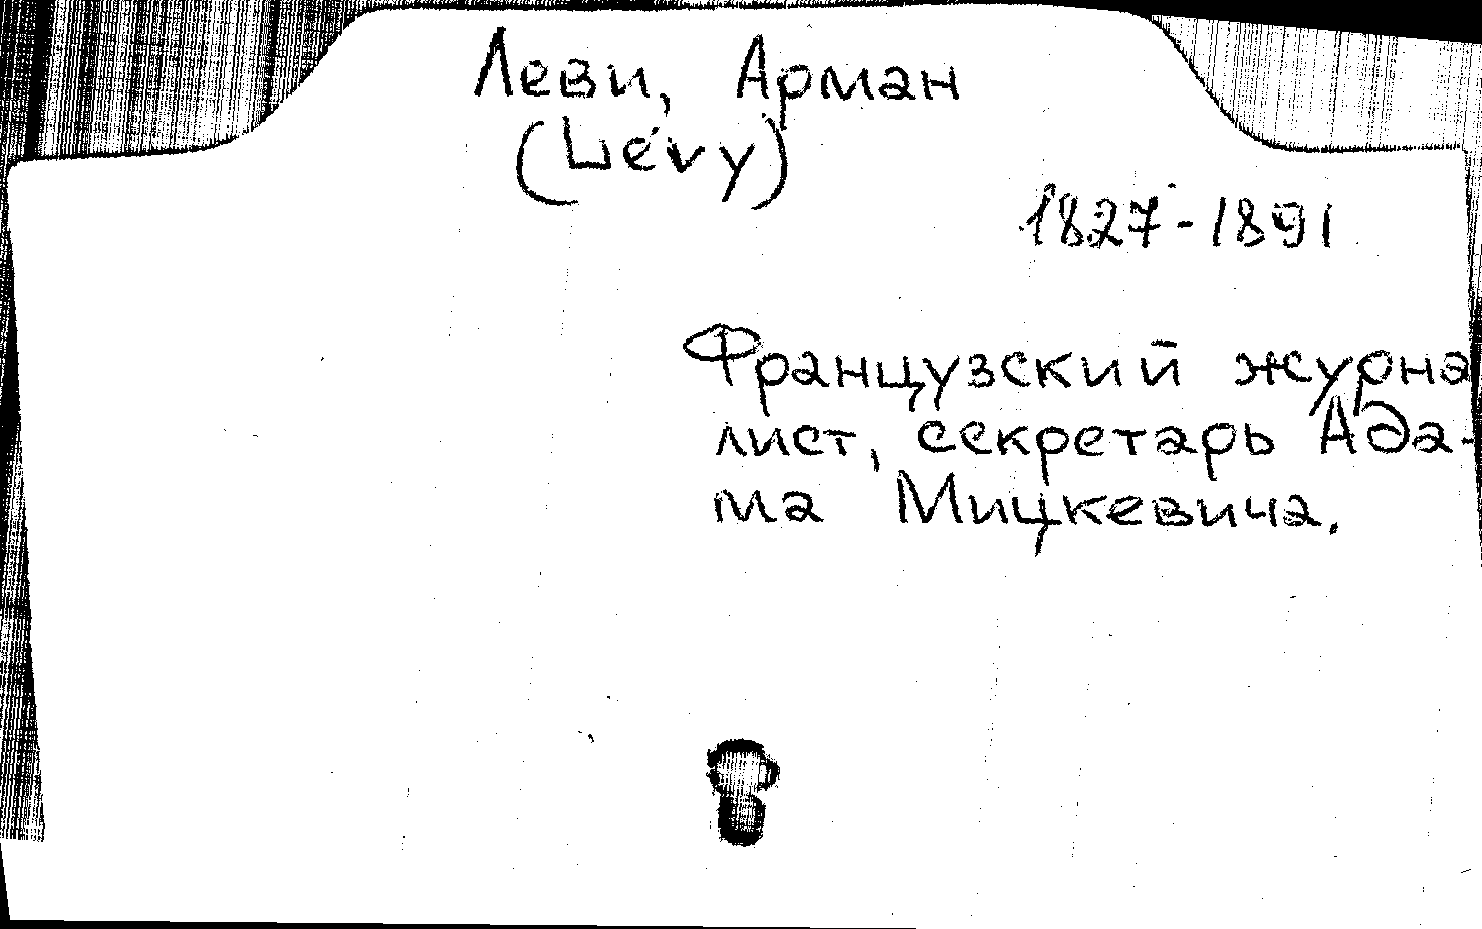 Леви, Арман
(Lévy)
1827-1891
Французский журна
лист, секретарь Ада-
ма Мицкевича.